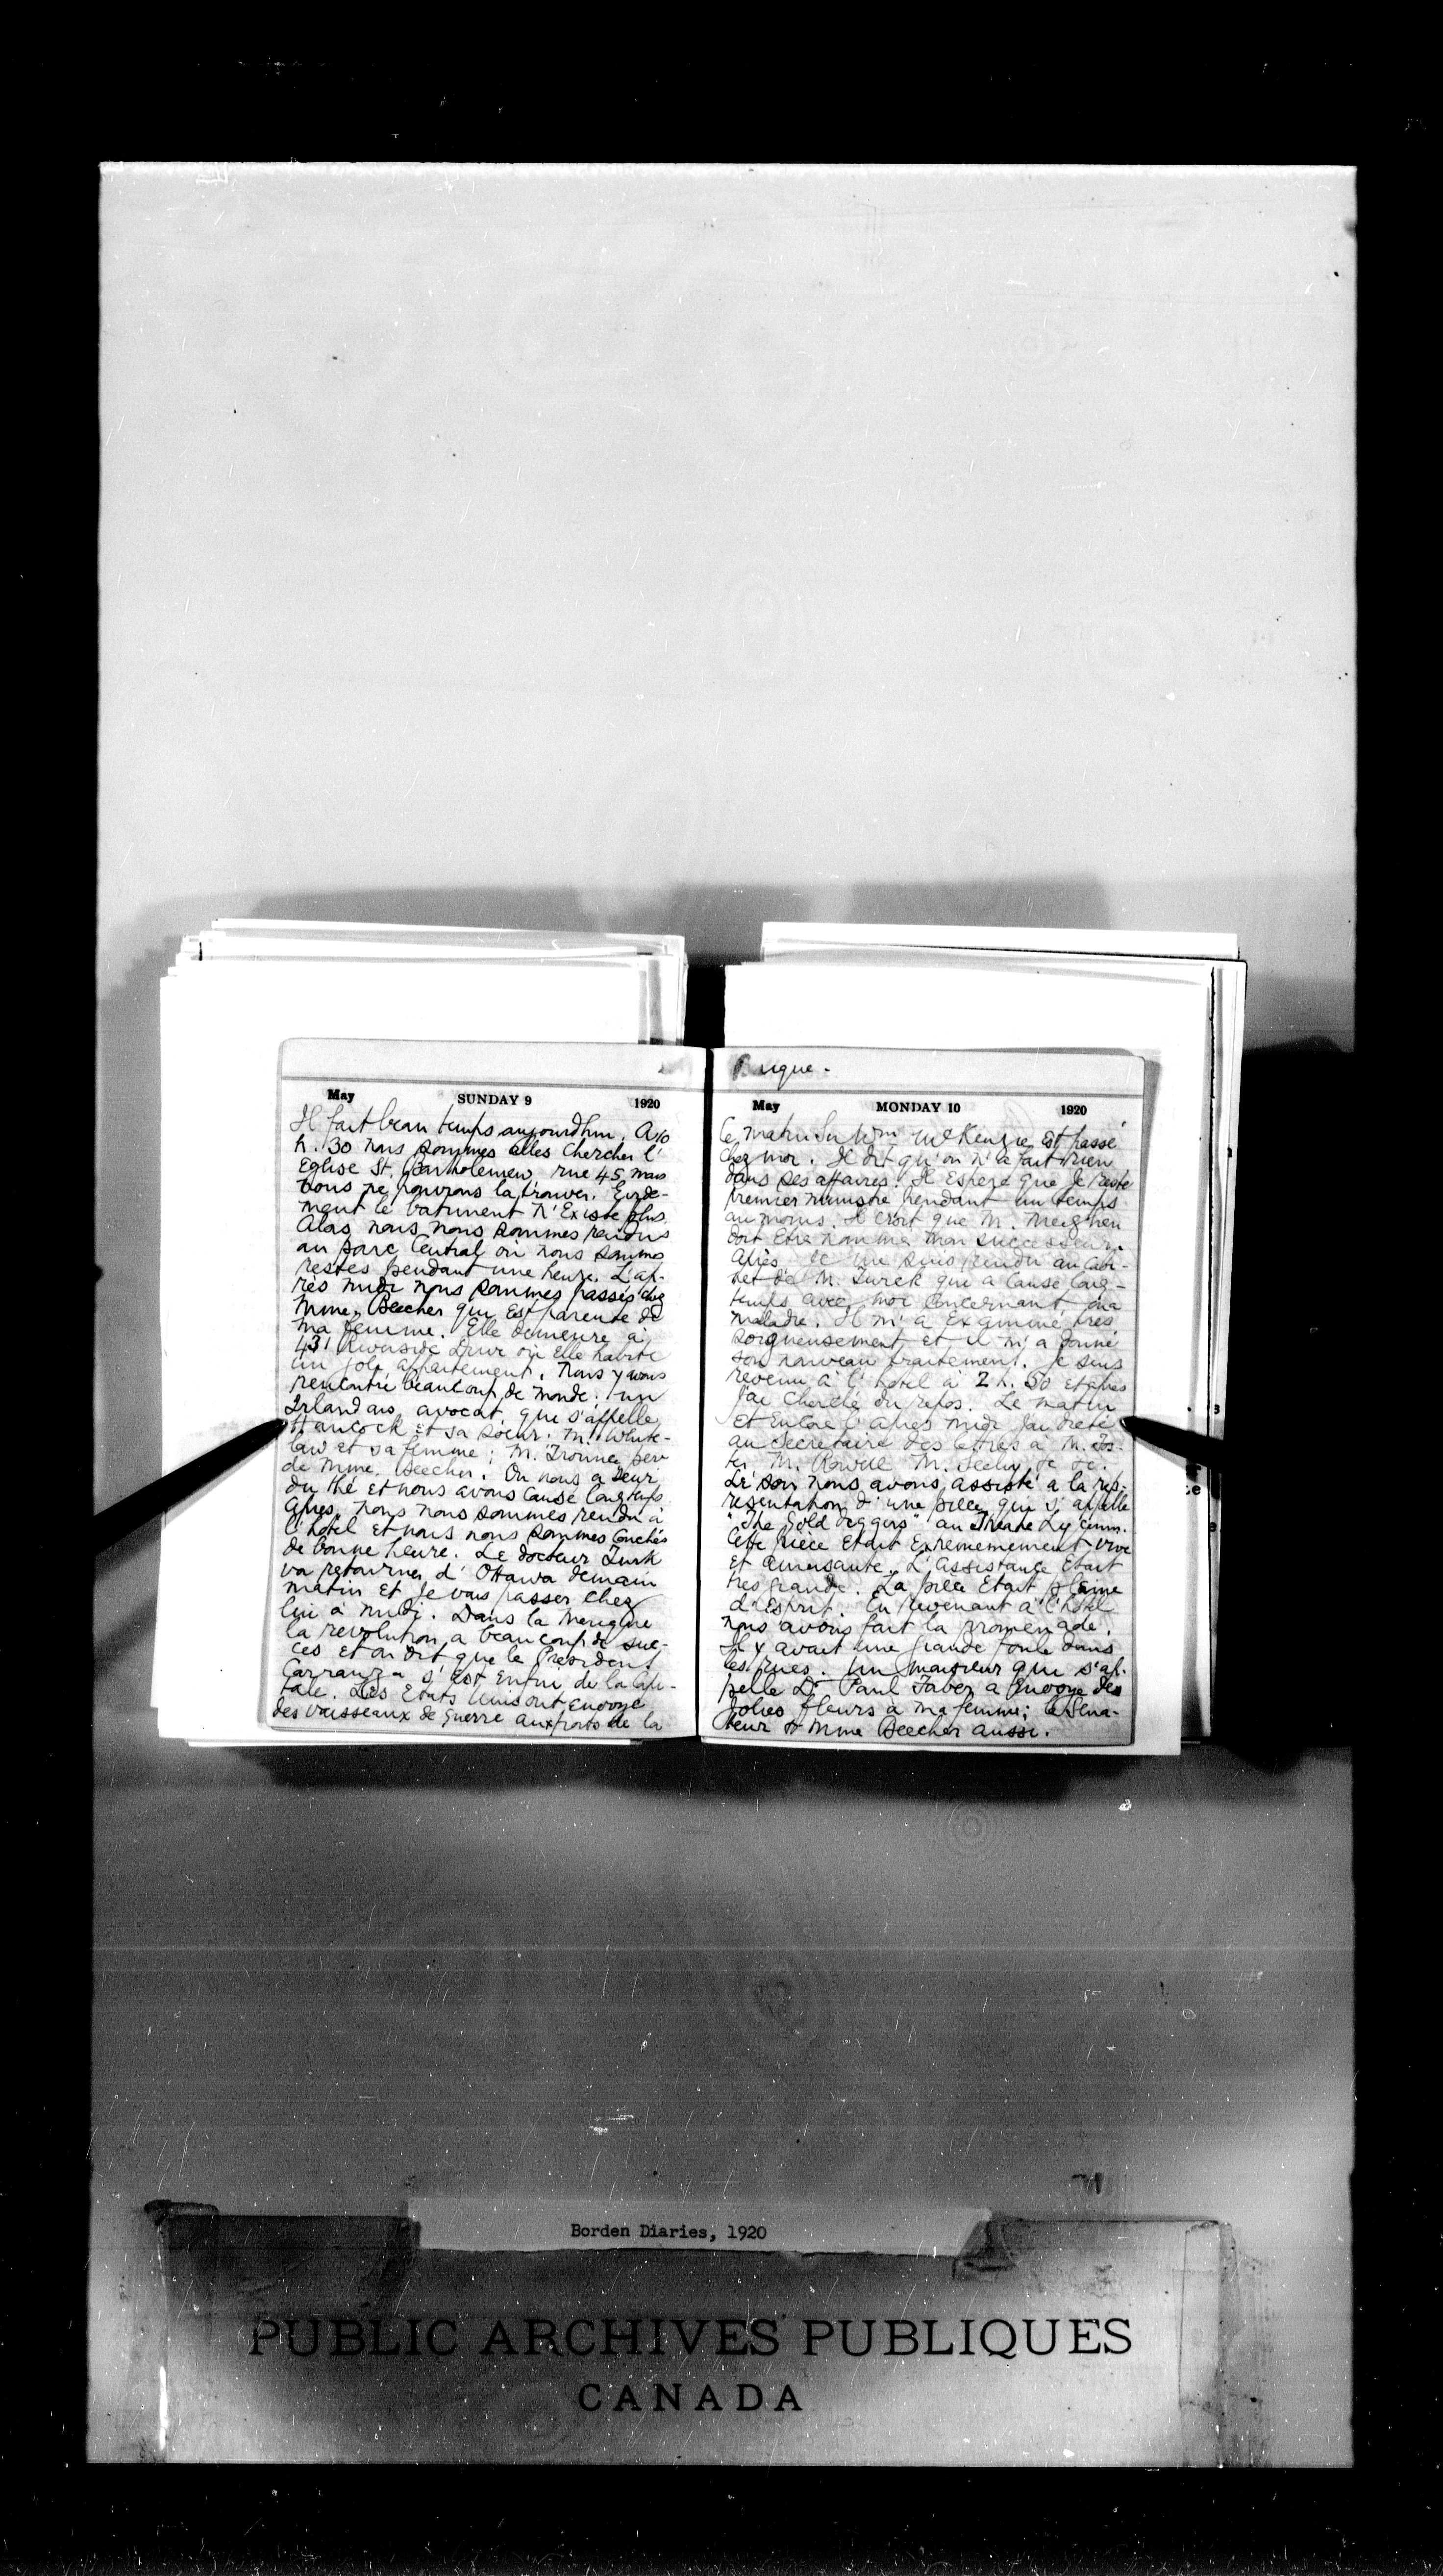 May SUNDAY 9 1920
Il fait beau temps aujourdhui. A 10
h. 30 nous sommes allés chercher l'
Eglise St. Bartholemew rue 45 mais
nous ne pouvons la trouver. Evide-
ment le batiment n'existe plus.
Alas nous nous sommes rendus
au parc Central ou nous sommes
restés pendant une heure. L'ap-
res midi nous sommes passés chez
Mme. Beecher qui est parente de
ma femme. Elle demeure à
431 Riverside Drive où elle habite
un joli appartement. Nous y avons
rencontré beaucoup de monde: un
Irlandais, avocat, qui s'appelle
Hancock et sa soeur. M. White-
law et sa femme; M. père
de Mme. Beecher. On nous a servi
du thé et nous avons causé longtemps
Apres, nous nous sommes rendu à
l'hotel et nous nous sommes couchés
de bonne heure. Le docteur Turck
va retourner d'Ottawa demain
matin et je vais passer chez
lui à midi. Dans la Mexique
la revolution a beaucoup de suc-
ces et on dit que le President
Carranza s'est enfui de la Capi-
tale. Les Etats Unis ont envoyé
des vaisseaux de guerre aux ports de la
May MONDAY 10 1920
Ce matin Sir Wm McKenzie est passé
chez moi. Il dit qu'on n'a fait rien
dans ses affaires. Il espere que je reste
premier ministre pendant un temps
au moins. Il croit que M. Meighen
doit etre nommé mon successeur.
Après je me suis rendu au cabi-
net de M. Turck qui a causé long-
temps avec moi concernant ma
maladie. Il m'a examiné très
soigneusement et il m'a donné
son nouveau traitement. Je suis
revenu à l'hotel à 2 h. 50 et après
j'ai cherché du repos. Le matin
et encore l'apres midi j'ai dicté
au secretaire des lettres à M. Fos-
ter M. Rowell M. &c &c.
Le soir nous avons assisté a la rep-
résentation d'une piece qui s'appelle
"The Gold Diggers" au Theatre Lyceum.
Cette pièce etait extrememement vive
et amusante. L'assistance etait
tres grande. La piece etait pleine
d'Esprit. En revenant à l'hotel
nous avons fait la promenade.
Il y avait une grande foule dans
les rues. Un monsieur qui s'ap-
pelle Dr Paul Taber a envoyé des
jolies fleurs à ma femme; le Sena-
teur & Mme Beecher aussi.
Borden Diaries, 1920
PUBLIC ARCHIVES PUBLIQUES
CANADA